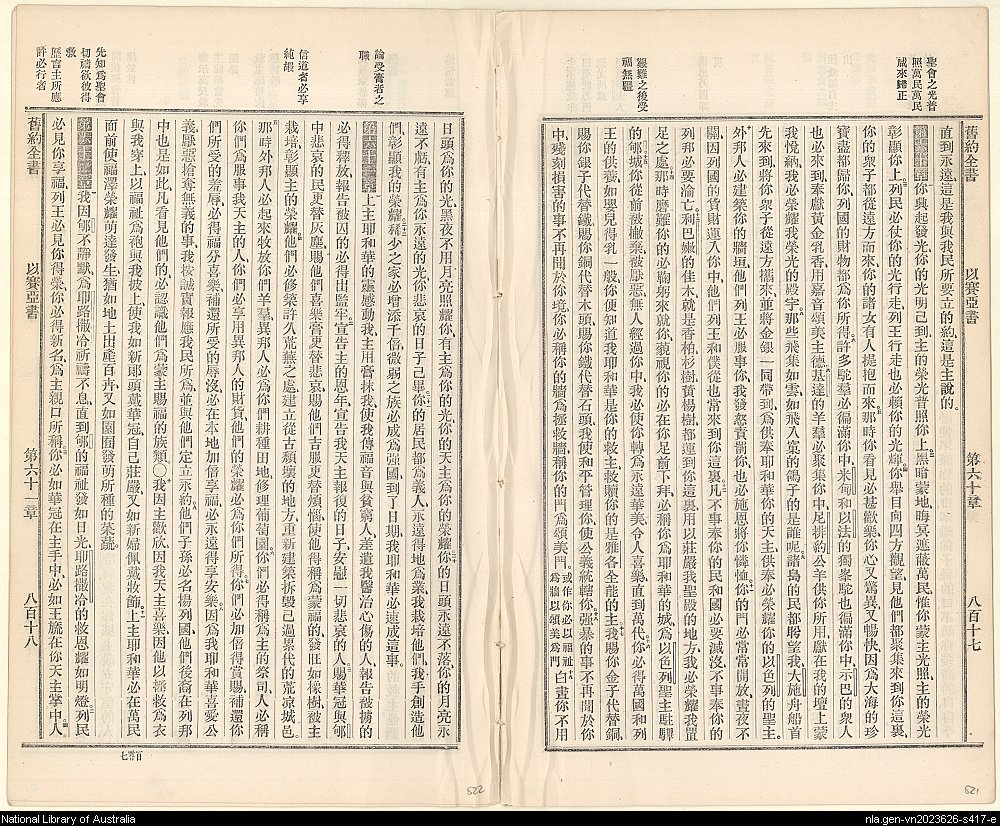 聖會之光普
照萬民萬民
咸來歸正
艱難之後受
福無疆
舊約全書 以賽亞書 第六十章 八百十七
直到永遠、這是我與我民所要立的約、這是主說的。
你興起發光、你的光明已到、主的榮光普照你上、黑暗蒙地、晦冥遮蔽萬民、惟你蒙主光照、主的榮光
彰顯你上、列民必仗你的光行走、列王行走也必賴你的光輝、你舉目向四方觀望、見他們都聚集來到你這裏、
你的衆子都從遠方而來、你的諸女有人提抱而來、那時你看見必甚歡樂、你心又驚異又暢快、因爲大海的珍
寶盡都歸你、列國的財物都爲你所得、許多駝羣必徧滿你中、米甸和以法的獨峯駝也徧滿你中、示巴的衆人
也必來到、奉獻黃金乳香、用嘉音頌美主德、基達的羊羣必聚集你中、尼排約公羊供你所用、獻在我的壇上蒙
我悅納、我必榮耀我榮光的殿宇、那些飛集如雲如飛入窠的鴿子的是誰呢、諸島的民都盼望我、大施舟船首
先來到、將你衆子從遠方攜來、並將金銀一同帶到、爲供奉耶和華你的天主、供奉必榮耀你的以色列的聖主。
外邦人必建築你的牆垣、他們列王必服事你、我發怒責罰你、也必施恩將你憐恤、你的門必常常開放、晝夜不
關、因列國的貨財運入你中、他們列王和僕從也當來到你這裏、凡不事奉你的民和國必要滅沒、不事奉你的
列邦必要淪亡、利巴嫩的佳木、就是香柏杉樹黃楊樹、都運到你這裏、用以莊嚴我聖殿的地方、我必榮耀我置
足之處、那時磨難你的必鞠躬來就你、藐視你的必在你足前下拜、必稱你爲主耶和華的城、爲以色列聖主駐驛
的郇城、你從前被撇棄被厭惡無人經過你中、我必使你轉爲永遠華美、令人喜樂、直到萬代、你必得萬國和列
王的供養、如嬰兒得乳一般、你便知道我耶和華是你的救主、救贖你的是雅各全能的主、我賜你金子代替銅、
賜你銀子代替鐵、賜你銅代替木頭、賜你鐵代替石頭、我使和平管理你、使公義統轄你、强暴的事不再聞於你
中、殘刻損害的事不再聞於你境、你必稱你的牆爲拯救牆、稱你的門爲頌美門。或作你必以福祉爲牆以頌美爲門白晝你不用
521
先知爲聖會
初禱欲彼得
救
歷言主所應
許必行者
信道者必享
純嘏
論受膏者之
職
日頭爲你的光、黑夜不用月亮照耀你、有主爲你的光、你的天主爲你的榮耀、你的日頭永遠不落、你的月亮永
遠不虧、有主爲你永遠的光、你悲哀的日子已畢、你的居民都爲義人、永遠得地爲業、我栽培他們、我手創造他
們、彰顯我的榮耀、稀少之家必增添千倍、微弱之族必成爲强國、到了日期、我耶和華必速成這事。
上主耶和華的靈感動我、主用膏抹我、使我傳福音與貧窮人、差遣我醫治心傷的人、報告被擄的
必得釋放、報告被囚的必得出監牢、宣告主的恩年、宣告我天主報復的日子、安慰一切悲哀的人、賜華冠與郇
中悲哀的民、更替灰塵、賜他們喜樂膏、更替悲哀、賜他們吉服、更替煩惱、使他得稱爲蒙福的發旺如橡樹、被主
栽培、彰顯主的榮耀、他們必修築許久荒蕪之處、建立從古頹壞的地方、重新建築拆毀已過累代的荒涼城邑。
那時外邦人必起來牧放你們羊羣、異邦人必爲你們耕種田地、修理葡萄園、你們必得稱爲主的祭司、人必稱
你們爲服事我天主的人、你們必享用異邦人的財貨、他們的榮耀必爲你們所得、你們必加倍得賞賜、補還你
們所受的羞辱、必得福分喜樂、補還所受的辱沒、必在本地加倍享福、必永遠得享安樂、因爲我耶和華喜愛公
義、厭惡搶奪無義的事、我按誠實報應我民所爲、並與他們定立永約、他們子孫必名揚列國、他們後裔在列邦
中也是如此、凡看見他們的必認識他們爲蒙主賜福的族類、〇我因主歡欣、因我天主喜樂、因他以拯救爲衣
與我穿上、以福祉爲袍與我披上、使我如新郎頭戴華冠、自己莊嚴、又如新婦佩戴妝飾、上主耶和華必在萬民
面前使福澤榮耀萌達發生、猶如地土出產百卉、又如園囿發萌所種的菜蔬。
我因郇不靜默、爲耶路撒冷祈禱不息、直到郇的福祉發如日光、耶路撒冷的救恩耀如明燈、列民
必見你享福、列王必見你得榮、你必得新名、爲主親口所稱、你必如華冠在主手中、必如王旒在你天主掌中、人
舊約全書 以賽亞書 第六十一章 八百十八
522
National Library of Australia
nla.gen-vn2023626-s417-e